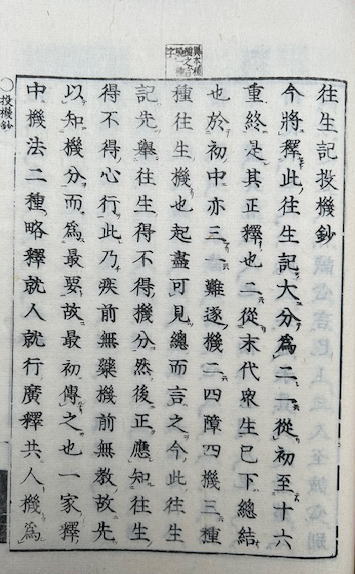 往生記投機鈔
今將釋此往生記大分爲二一從初至十六
重終是其正釋也二從末代衆生已下總結
也於初中亦三一難遂機二四障四機三種
種往生機也起盡可見總而言之今此往生
記先舉往生得不得機分然後正應知往生
得不得心行此乃疾前無藥機前無教故先
以知機分而爲最要故最初傳之也一家釋
中機法二種略釋就人就行廣釋共人機爲
投機鈔